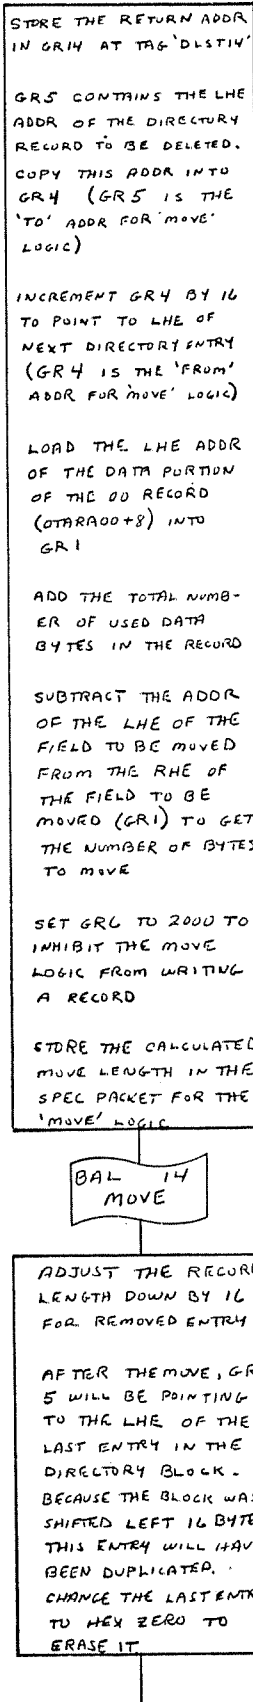 STORE THE RETURN ADDR
IN GR14 AT TAG 'DLST14'
GR5 CONTAINS THE LHE
ADDR OF THE DIRECTORY
RECORD TO BE DELETED.
COPY THIS ADDR INTO
GR4 (GR5 IS THE
'TO' ADDR FOR 'MOVE'
LOGIC)
INCREMENT GR4 BY 16
TO POINT TO LHE OF
NEXT DIRECTORY ENTRY
(GR4 IS THE 'FROM'
ADDR FOR 'MOVE' LOGIC)
LOAD THE LHE ADDR
OF THE DATA PORTION
OF THE 00 RECORD
(OTARA00+8) INTO
GR1
ADD THE TOTAL NUMB-
ER OF USED DATA
BYTES IN THE RECORD
SUBTRACT THE ADDR
OF THE LHE OF THE
FIELD TO BE MOVED
FROM THE RHE OF
THE FIELD TO BE
MOVED (GR1) TO GET
THE NUMBER OF BYTES
TO MOVE
SET GR6 TO 2000 TO
INHIBIT THE MOVE
LOGIC FROM WRITING
A RECORD
STORE THE CALCULATED
MOVE LENGTH IN THE
SPEC PACKET FOR THE
'MOVE' LOGIC
BAL 14
MOVE
ADJUST THE RECOR
LENGTH DOWN BY 16
FOR REMOVED ENTRY
AFTER THE MOVE, GR
5 WILL BE POINTING
TO THE LHE OF THE
LAST ENTRY IN THE
DIRECTORY BLOCK.
BECAUSE THE BLOCK WAS
SHIFTED LEFT 16 BYTE
THIS ENTRY WILL HAV
BEEN DUPLICATED.
CHANGE THE LAST ENTR
TO HEX ZERO TO
ERASE IT